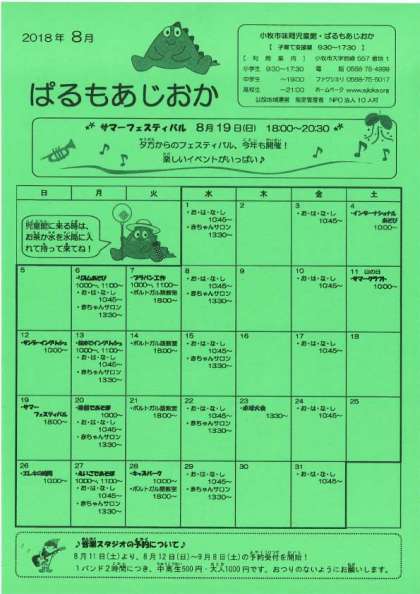 2018年 8月
ぱるもあじおか
小牧市味岡児童館・ぱるもあじおか
【 子育て支援室 9:30~17:30 】
【 利 用 案 内 】
小学生 9:30~17:30
中学生 ~19:00
高校生 ~21:00
サマーフェスティバル 8月19日(日) 18:00~20:30
夕方からのフェスティバル、今年も開催!
楽しいイベントがいっぱい♪
日 月 火 水 木 金 土
児童館に来る時は、
お茶か水を水筒に入
れて持って来てね!
1
・お・は・な・し
10:45~
・赤ちゃんサロン
13:30~
2
3
・お・は・な・し
10:45~
4
・インターナショナル
あそび
10:00~
5
6
・リズムあそび
10:00~、11:00~
・お・は・な・し
10:45~
・赤ちゃんサロン
13:30~
7
10:00~、11:00~
・ポルトガル語教室
18:00~
8
・お・は・な・し
10:45~
・赤ちゃんサロン
13:30~
9
10
・お・は・な・し
10:45~
11 山の日
・サマークラフト
10:00~
12
・サンデーイングリッシュ
10:00~
13
10:00~、11:00~
・お・は・な・し
10:45~
・赤ちゃんサロン
13:30~
14
・ポルトガル語教室
18:00~
15
・お・は・な・し
10:45~
・赤ちゃんサロン
13:30~
16
17
・お・は・な・し
10:45~
18
19
・サマー
フェスティバル
18:00~
20
10:00~
・お・は・な・し
10:45~
・赤ちゃんサロン
13:30~
21
・ポルトガル語教室
18:00~
22
・お・は・な・し
10:45~
・赤ちゃんサロン
13:30~
23
・卓球大会
13:30~
24
・お・は・な・し
10:45~
25
26
10:00~
27
・えいごであそぼ
10:00~、11:00~
・お・は・な・し
10:45~
・赤ちゃんサロン
13:30~
28
・キッズパーク
10:00~
・ポルトガル語教室
18:00~
29
・お・は・な・し
10:45~
・赤ちゃんサロン
13:30~
30
31
・お・は・な・し
10:45~
♪音楽スタジオの予約について♪
8月11日(土)より、8月12日(日)~9月8日(土)の予約受付を開始!
1バンド2時間につき、中高生500円・大人1000円です。おつりのないようにお願いします。